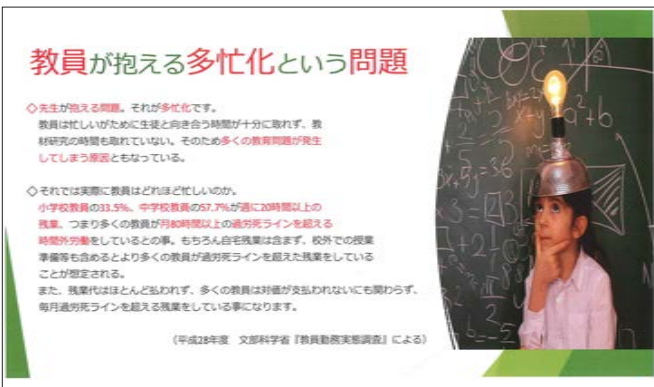 教員が抱える多忙化という問題
◇先生が抱える問題。それが多忙化です。
教員は忙しいがために生徒と向き合う時間が十分に取れず、教
材研究の時間も取れていない。そのため多くの教育問題が発生
してしまう原因ともなっている。
◇それでは実際に教員はどれほど忙しいのか。
小学校教員の33.5%、中学校教員の57.7%が週に20時間以上の
残業、つまり多くの教員が月80時間以上の過労死ラインを超える
時間外労働をしているとの事。もちろん自宅残業は含まず、校外での授業
準備等も含めるとより多くの教員が過労死ラインを超えた残業をしている
ことが想定される。
また、残業代はほとんど払われず、多くの教員は対価が支払われないにも関わらず、
毎月過労死ラインを超える残業をしている事になります。
(平成28年度 文部科学省『教員勤務実態調査』による)